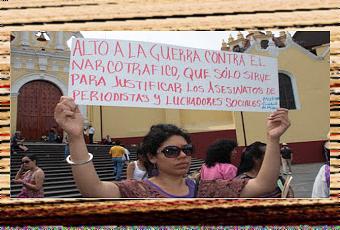 ALTO A LA GUERRA CONTRA EL
NARCOTRAFICO, QUE SÓLO SIRVE
PARA JUSTIFICAR LOS ASESINATOS DE
PERIODISTAS Y LUCHADORES SOCIALES.